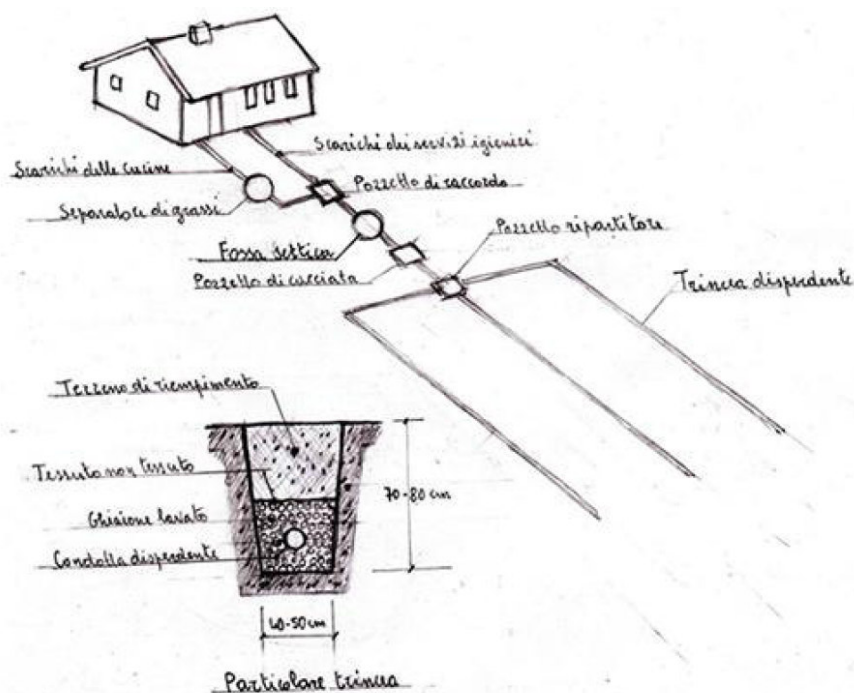 Scarichi dei servizi igienici
Scarichi delle cucine
Pozzetto di raccordo
Separatore di grassi
Pozzetto ripartitore
Fossa settica
Pozzetto di cacciata
Trincea disperdente
Terreno di riempimento
Tessuto non tessuto
70-80 cm
Ghiaione lavato
Condotta disperdente
40-50 cm
Particolare trincea